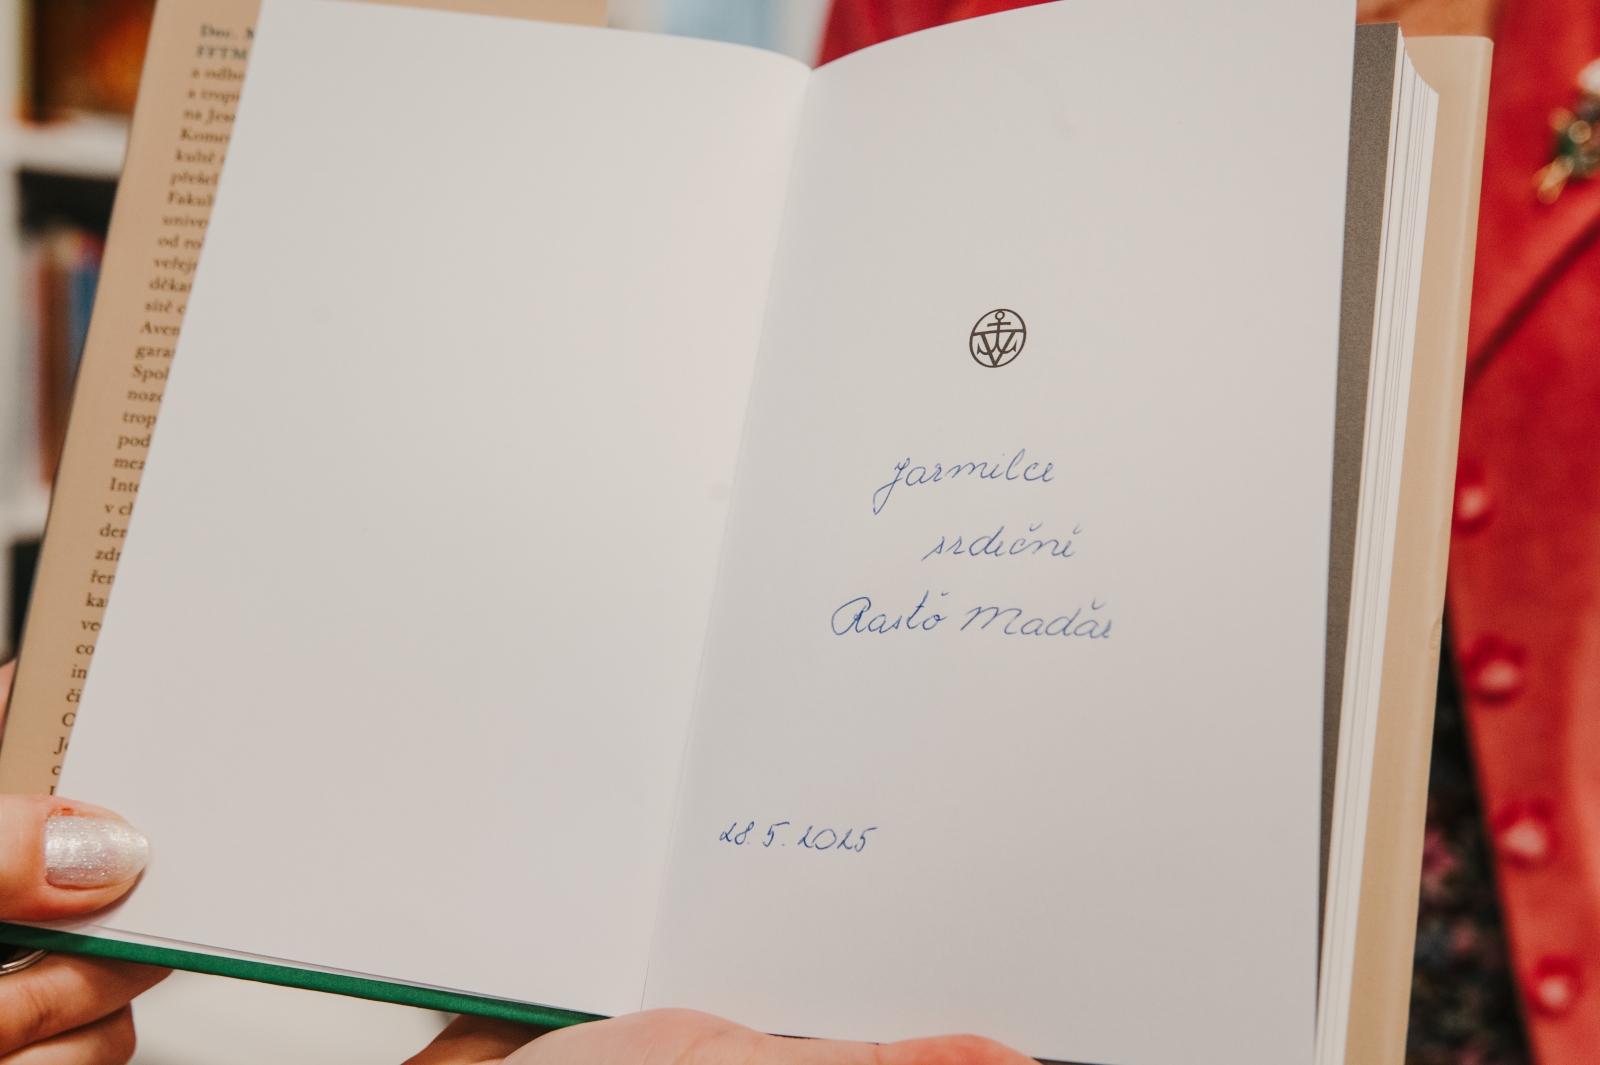 Doc. M
FFTM
a odbo
a tropi
na Jess
Komo
kultě
přešel
Fakul
unive
od ro
veřej
děkan
sítě c
Aven
garan
Spol
nozo
trop
pod
mez
Inte
v ch
den
zdr
řen
ka
ve
co
in
či
C
Je
c
Jarmilce
srdečně
Rasťo Maďar
28. 5. 2025